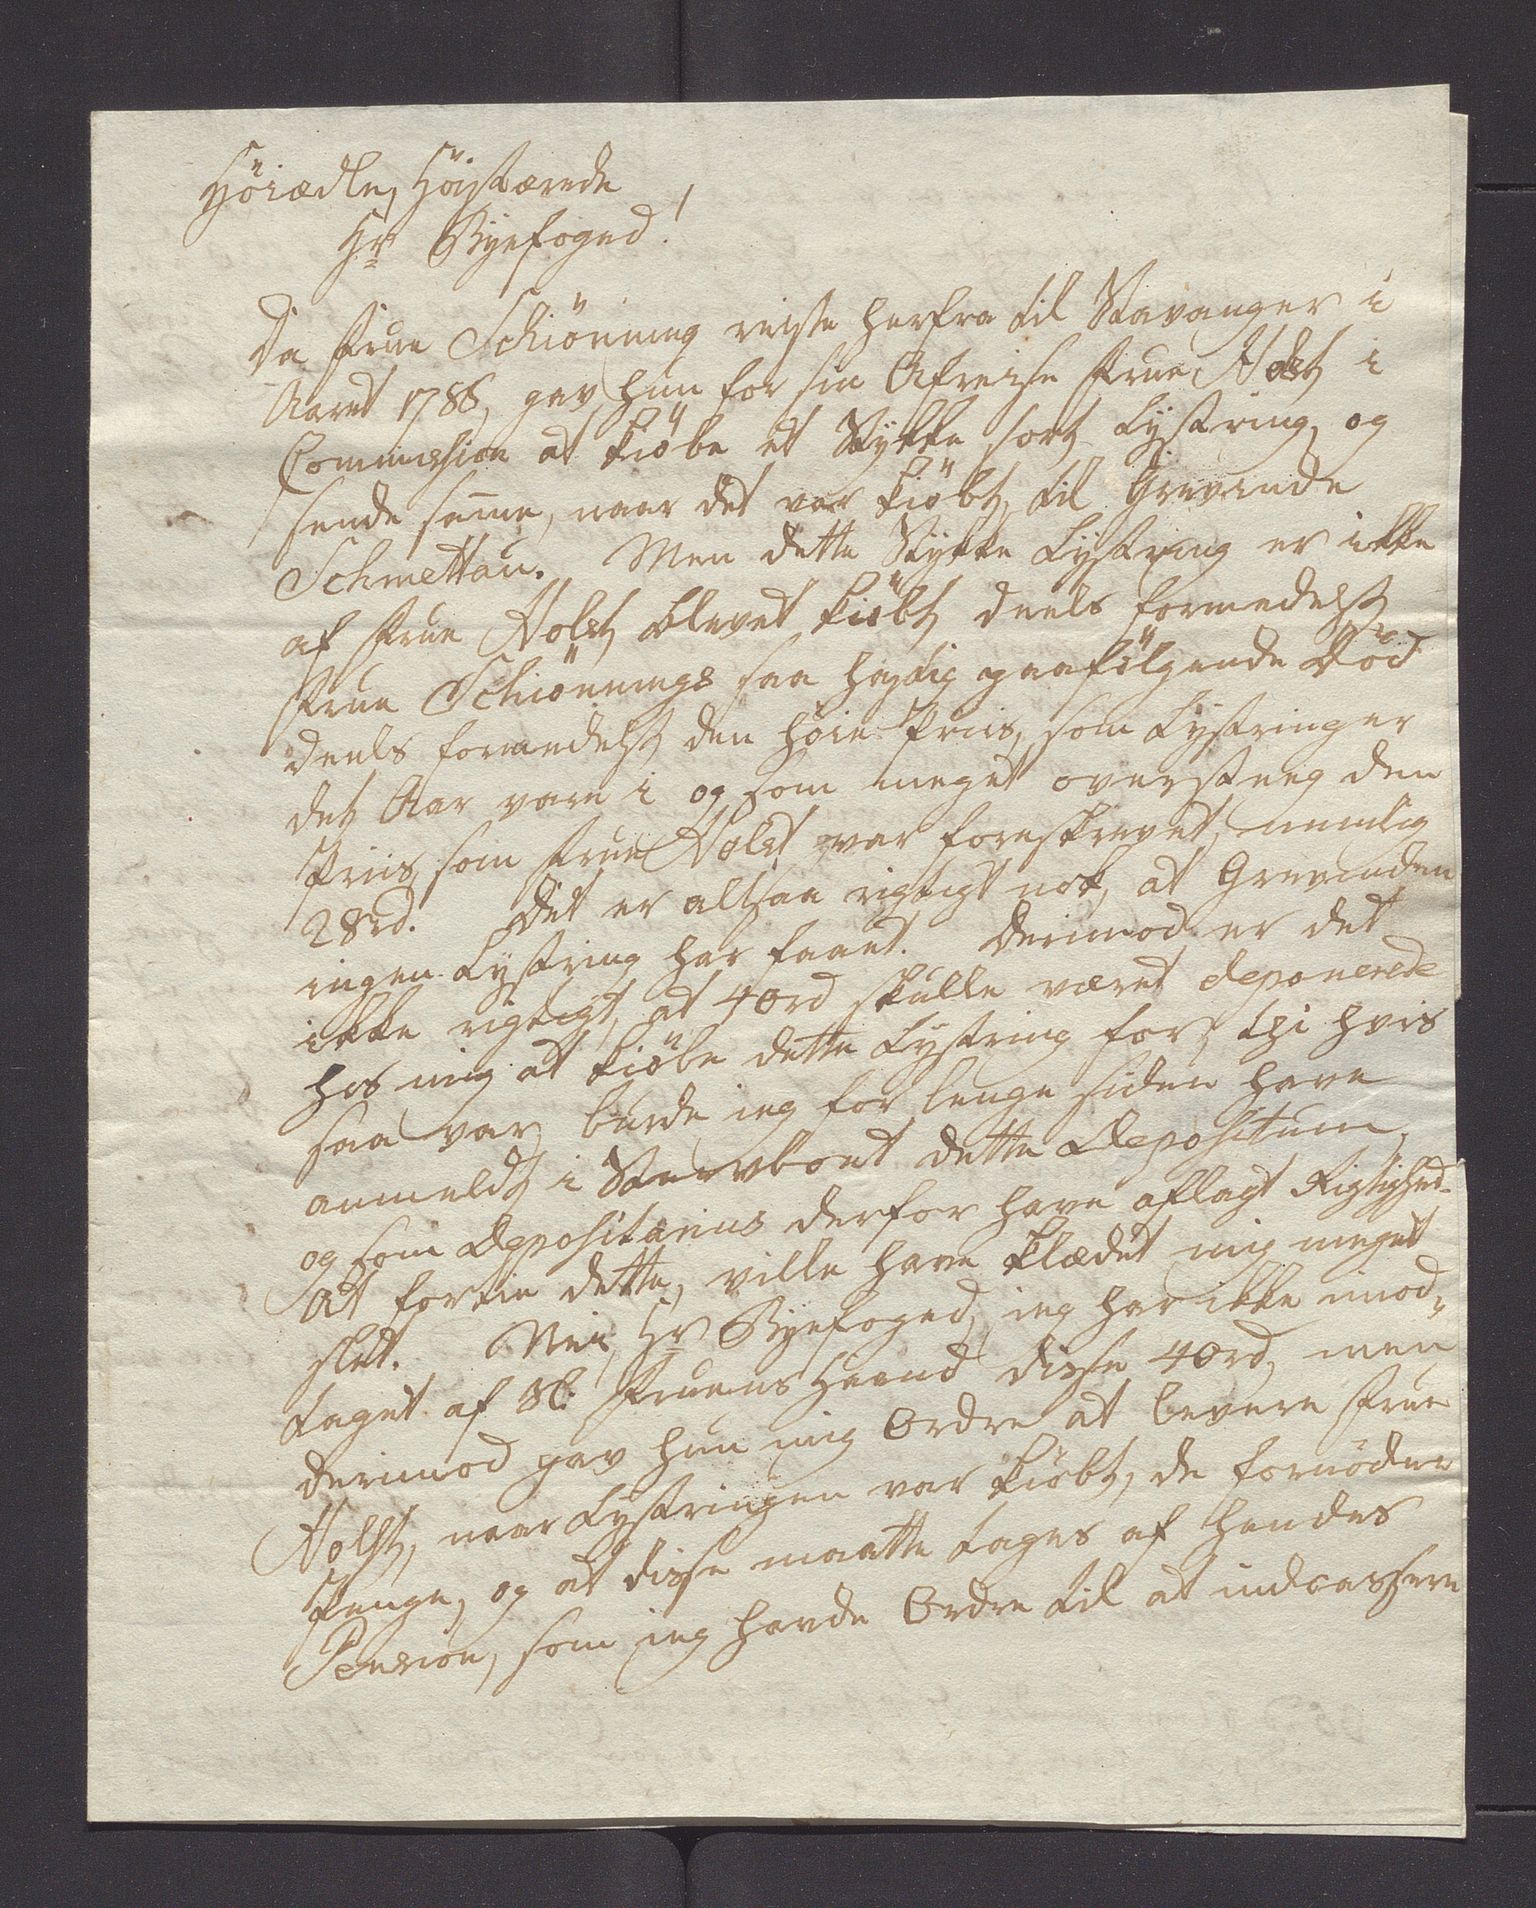 Höiædle, Höistærede
Hr Byefoged!
Da Frue Schiönning reiste herfra til Stavanger i
Aaret 1788, gav hun for sin Afreise Frue Holst i
Commission at kiöbe et Stykke sort Lystring, og
sende samme, naar det var kiöbt, til Grevinde
Schmettau. Men dette Stykke Lystring er ikke
af Frue Holst blevet kiöbt deels formedelst
Frue Schiönnings saa hastig paafölgende Död
deels formedelst den höie Priis, som Lystringer
det Aar vare i og som meget oversteeg den
Priis, som Frue Holst var foreskrevet, nemlig
28rd. Det er altsaa rigtigt nok, at Grevinden
ingen Lystring har faaet. Derimod er det
ikke rigtigt, at 40rd skulle været deponerede
hos mig at kiöbe dette Lystring for, thi hvis
saa var, burde ieg for lenge siden have
anmeldt i Stervboet dette Depositum,
og som Depositarius derfor have aflagt Rigtighed.
At fortie dette, ville have klædet mig meget
slet. Nei, Hr Byefoged, ieg har ikke imod-
taget af Sl. Fruens Haand disse 40rd, men
derimod gav hun mig Ordre at levere Frue
Holst, naar Lystringen var kiöbt, de fornödne
Penge, og at disse maatte tages af hendes
Pension, som ieg havde Ordre til at indcassere